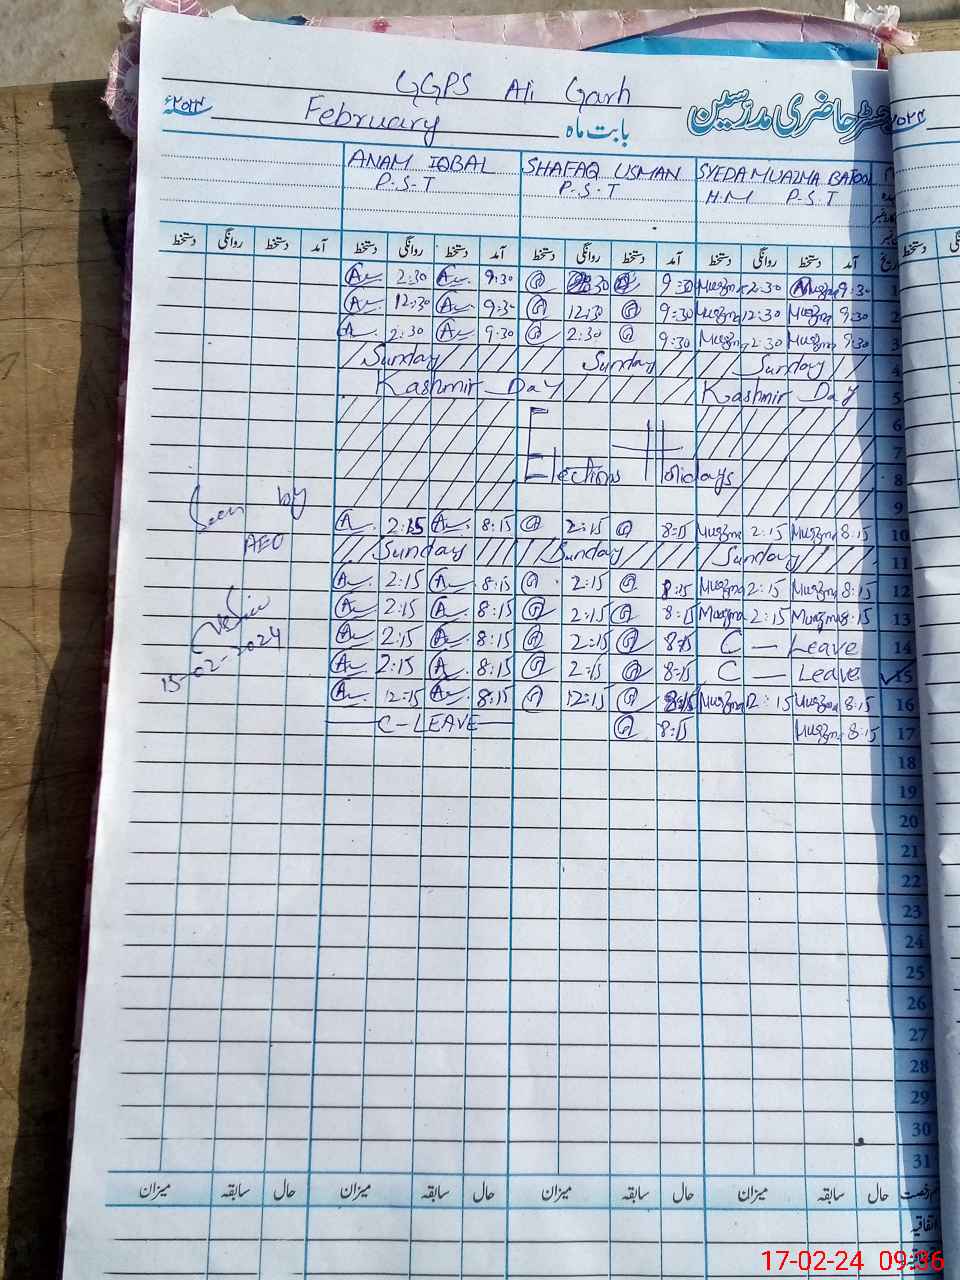 GGPS Ali Garh
رجسٹر حاضری مدرسین
بابت ماہ February ۲۰۲۴ء
ANAM IQBAL SHAFAQ USMAN SYEDA MUAZMA BATOOL
P.S.T P.S.T H.M P.S.T
دستخط روانگی دستخط آمد دستخط روانگی دستخط آمد دستخط روانگی دستخط آمد دستخط روانگی دستخط آمد
2:30 9:30 9:30 Muazma 2:30 Muazma 9:30 1
12:30 9:30 12:30 9:30 Muazma 12:30 Muazma 9:30 2
2:30 9:30 2:30 9:30 Muazma 2:30 Muazma 9:30 3
Sunday Sunday Sunday 4
Kashmir Day Kashmir Day 5
6
7
Elections Holidays 8
9
Seen by
2:15 8:15 2:15 8:15 Muazma 2:15 Muazma 8:15 10
AEO
Sunday Sunday Sunday 11
2:15 8:15 2:15 8:15 Muazma 2:15 Muazma 8:15 12
2:15 8:15 2:15 8:15 Muazma 2:15 Muazma 8:15 13
2:15 8:15 2:15 8:15 C — Leave 14
15-02-2024
2:15 8:15 2:15 8:15 C — Leave 15
12:15 8:15 12:15 8:15 Muazma 12:15 Muazma 8:15 16
C-LEAVE 8:15 Muazma 8:15 17
18
19
20
21
22
23
24
25
26
27
28
29
30
31
میزان سابقہ حال میزان سابقہ حال میزان سابقہ حال میزان سابقہ حال
اتفاقیہ
17-02-24 09:36